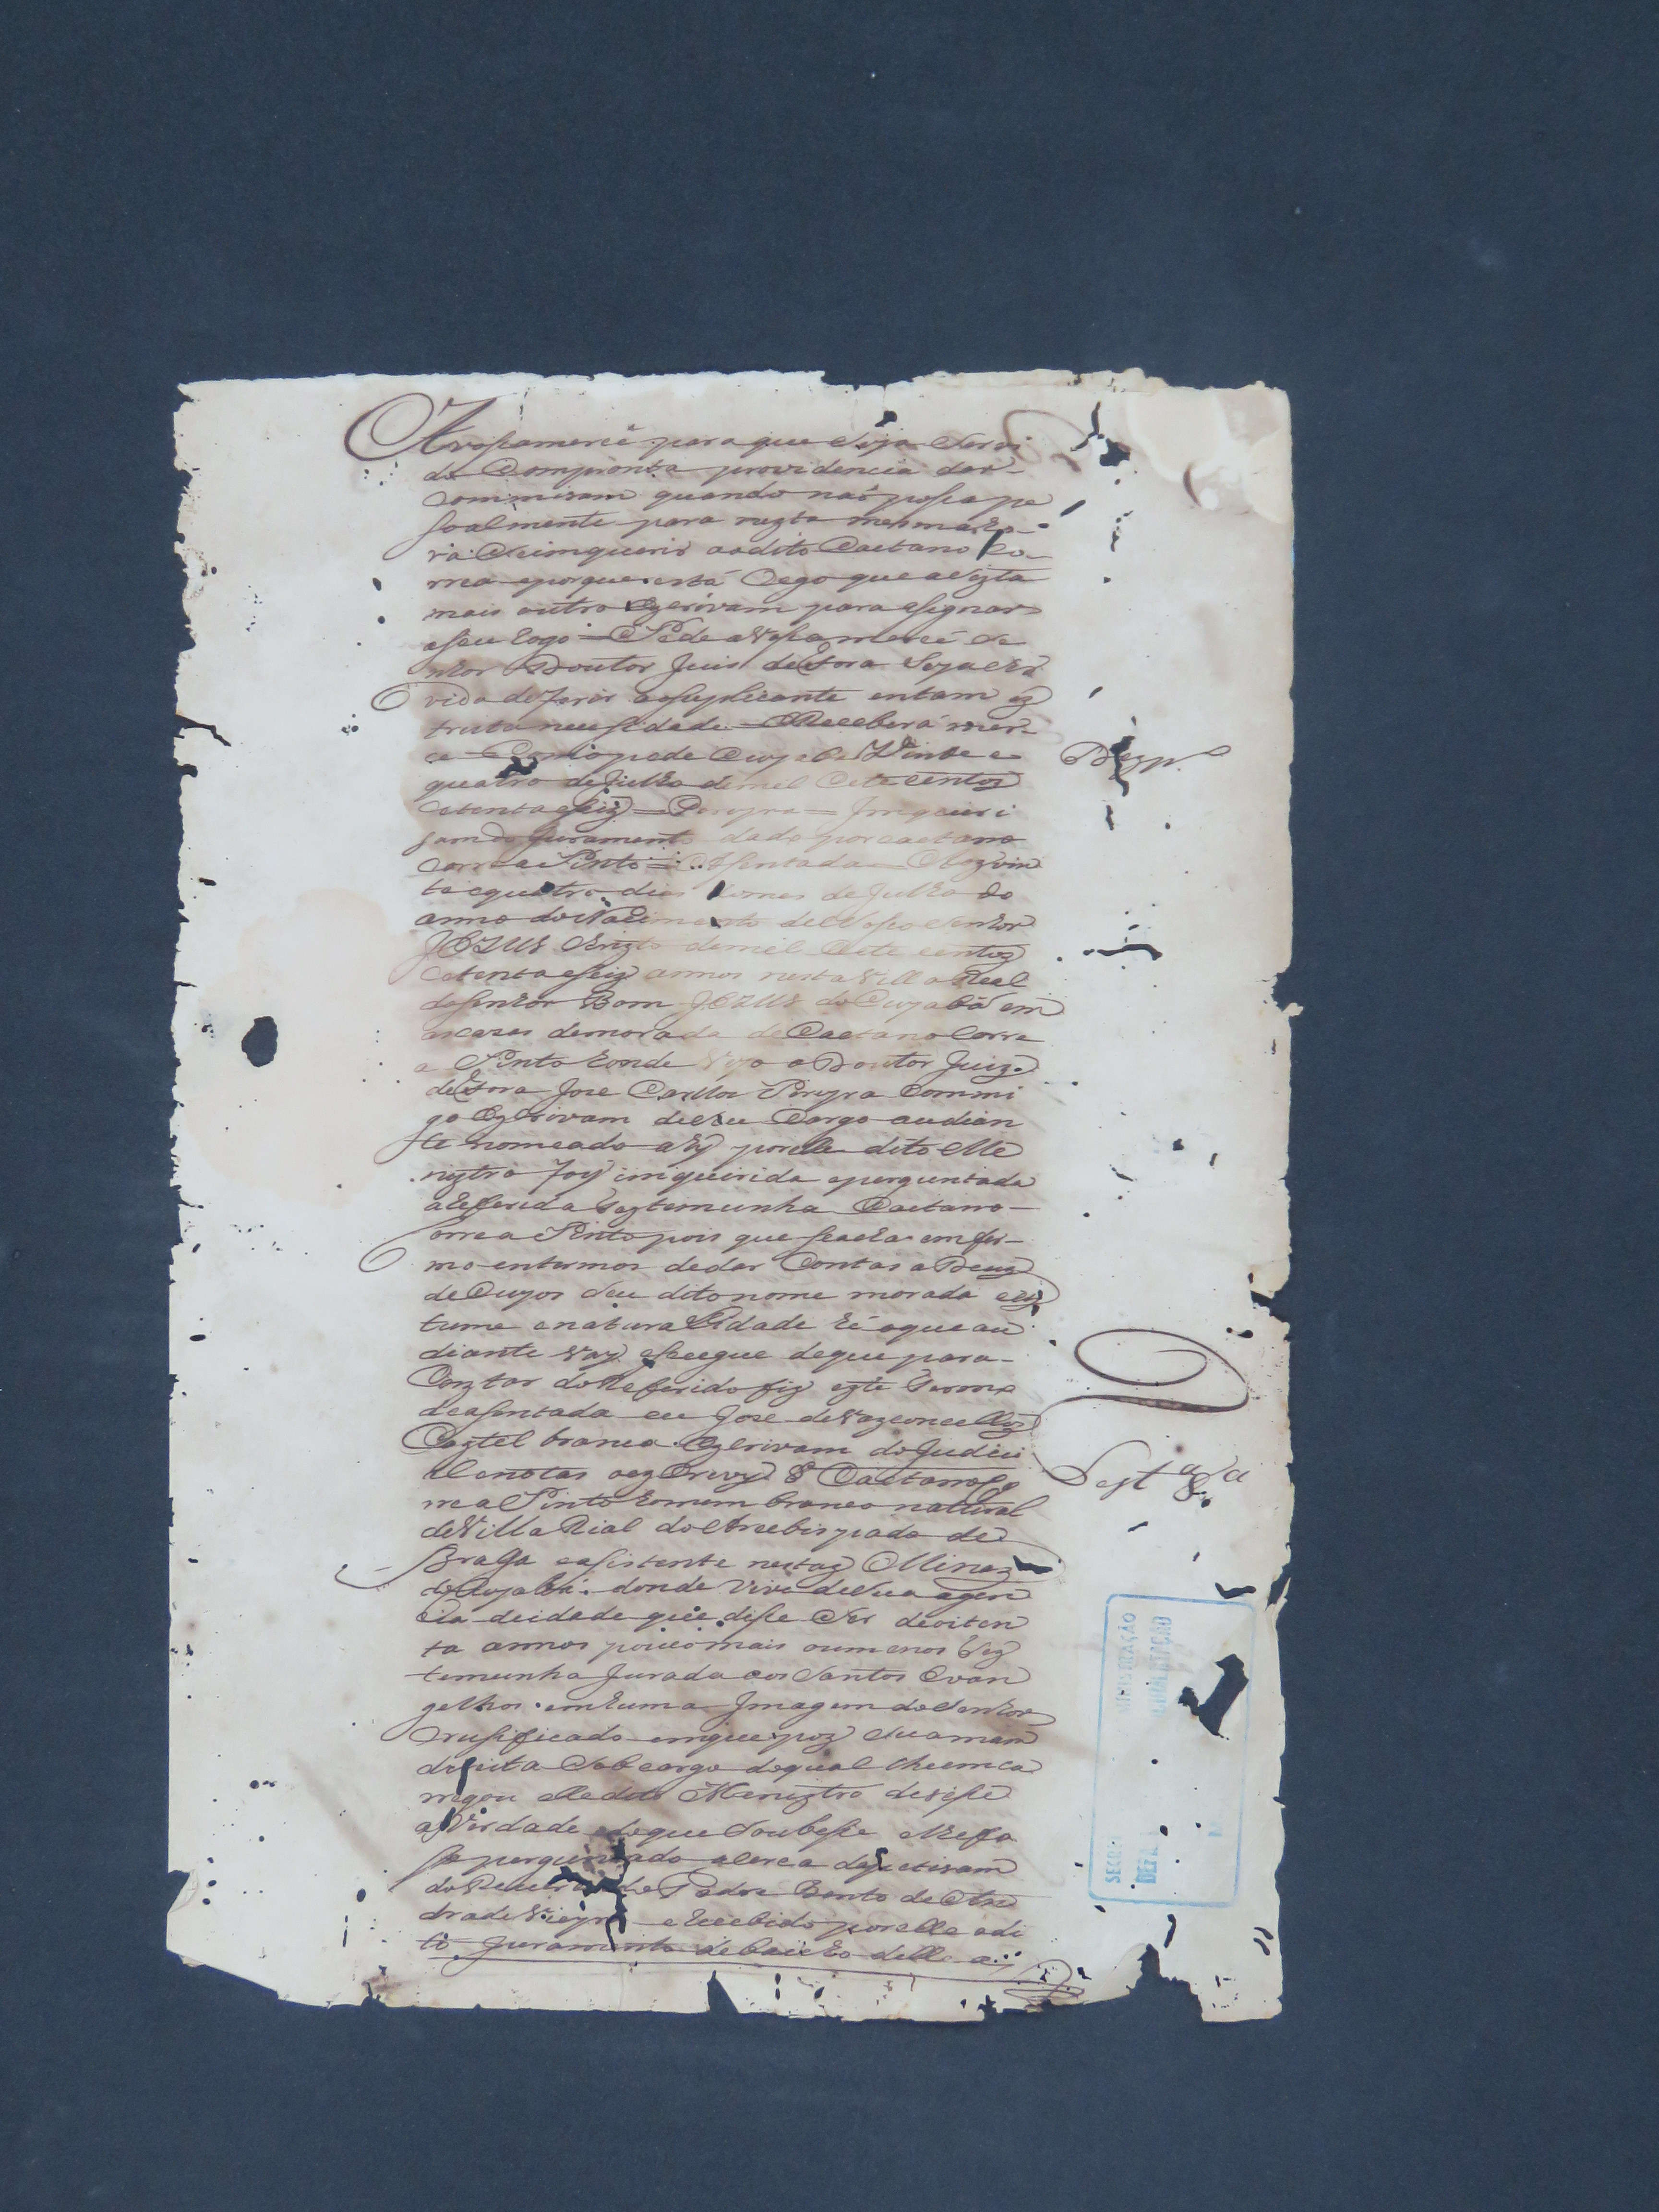 Avossamercê para que Seja Servi
do Compronta providencia dar
Commisam quando naõ possa pe
soalmente para nezta mesma ho
ra Se imquerir aodito Caetano Co
rrea eporque está Cego que a Vizta
mais outro Ezcrivam para asignar
aseu Rogo = Pede a Vossa mercê Se
nhor Doutor Juis de Fora Seja Ser
vido deferir aosuplicante entam ez
trita necessidade = Receberá mer
ce = Como pede Cuyabá Vinte e
quatro de Julho demil Sete Centoz
Setenta eseiz = Pereyra = Imqueri
Dezp.º
sam do Juramento dado por Caetano
Correa Pinto = Asentada = Aoz vin
te equatro dias do mes de Julho do
anno do Nacimento de Nosso Senhor
JEZUS Crizto demil Sete centoz
Setenta eseiz annos nesta Villa Real
do Senhor Bom JEZUS do Cuyabá em
as cazas demorada de Caetano Corre
a Pinto honde Veyo o Doutor Juiz
de Fora Joze Carllos Pereyra Commi
go Ezcrivam de Seu Cargo audian
te nomeado ahy por elle dito Me
niztro foy imquirida eperguntada
a Referida Teztemunha Caetano
Correa Pinto pois que se acha emfer
mo entermos dedar Contas a Deuz
de Cujos Seu dito nome morada coz
tume enaturalidade hé oque au
diante Vay eseegue deque para
Conztar do Referido fiz ezte Termo
deasentada eu Joze de Vazconcelloz
Caztel branco Ezcrivam do Judici
al enotas oez Crevy § Caetano Co
Test.ª 8.ª
rrea Pinto homem branco natural
de Villa Rial do Arcebispado de
Braga easistente nestaz Minaz
do Cuyabá donde Vive de Sua agen
cia deidade que disse Ser deoiten
ta annos pouco mais oumenos Tez
temunha Jurada aos Santos Evan
gelhos em huma Imagem do Senhor
Crusificado emque poz Sua mam
direita Sob cargo doqual lhe emca
rregou elle dito Meniztro disese
a Verdade do que Soubesse e lhe fo
se perguntado aserca dapetisam
do Reverendo Padre Bento de An
drade Vieyra e Recebido por elle odi
to Juramento debaicho delle